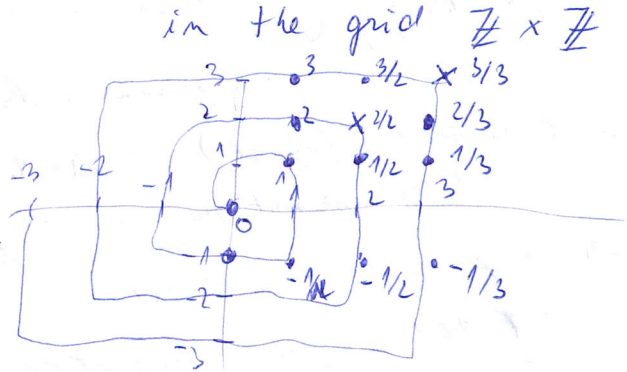 in the grid ℤ × ℤ
3 3 3/2 × 3/3
2 2 × 2/2 2/3
1 1 1/2 1/3
-3 -2 -1 1 2 3
0
-1/2 -1/3
-2
-3